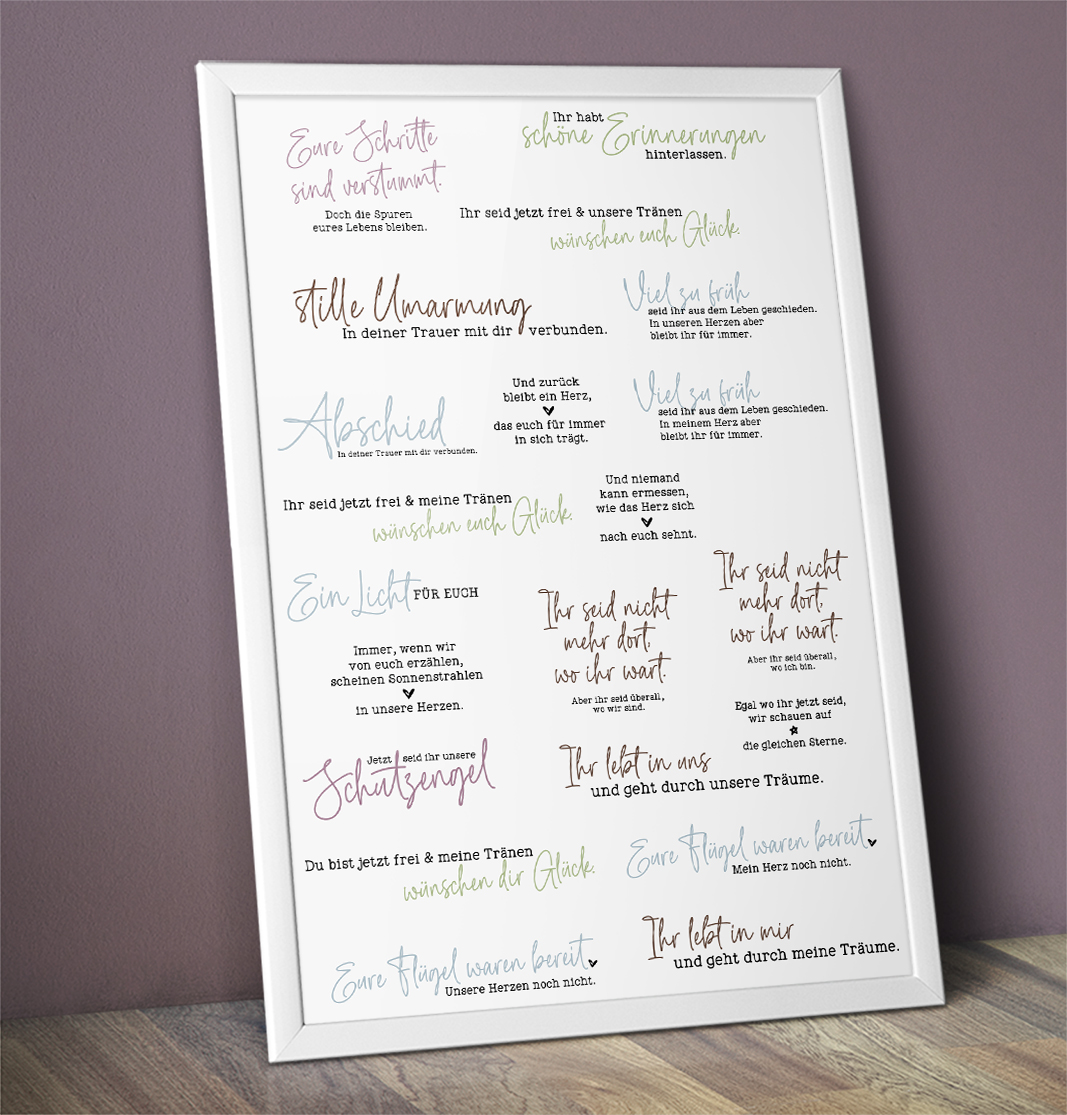 Eure Schritte
sind verstummt.
Doch die Spuren
eures Lebens bleiben.
Ihr habt
schöne Erinnerungen
hinterlassen.
Ihr seid jetzt frei & unsere Tränen
wünschen euch Glück.
stille Umarmung
In deiner Trauer mit dir verbunden.
Viel zu früh
seid ihr aus dem Leben geschieden.
In unseren Herzen aber
bleibt ihr für immer.
Abschied
In deiner Trauer mit dir verbunden.
Und zurück
bleibt ein Herz,
das euch für immer
in sich trägt.
Viel zu früh
seid ihr aus dem Leben geschieden.
In meinem Herz aber
bleibt ihr für immer.
Ihr seid jetzt frei & meine Tränen
wünschen euch Glück.
Und niemand
kann ermessen,
wie das Herz sich
nach euch sehnt.
Ein Licht FÜR EUCH
Ihr seid nicht
mehr dort,
wo ihr wart.
Aber ihr seid überall,
wo wir sind.
Ihr seid nicht
mehr dort,
wo ihr wart.
Aber ihr seid überall,
wo ich bin.
Immer, wenn wir
von euch erzählen,
scheinen Sonnenstrahlen
in unsere Herzen.
Egal wo ihr jetzt seid,
wir schauen auf
die gleichen Sterne.
Jetzt seid ihr unsere
Schutzengel
Ihr lebt in uns
und geht durch unsere Träume.
Du bist jetzt frei & meine Tränen
wünschen dir Glück.
Eure Flügel waren bereit
Mein Herz noch nicht.
Eure Flügel waren bereit
Unsere Herzen noch nicht.
Ihr lebt in mir
und geht durch meine Träume.